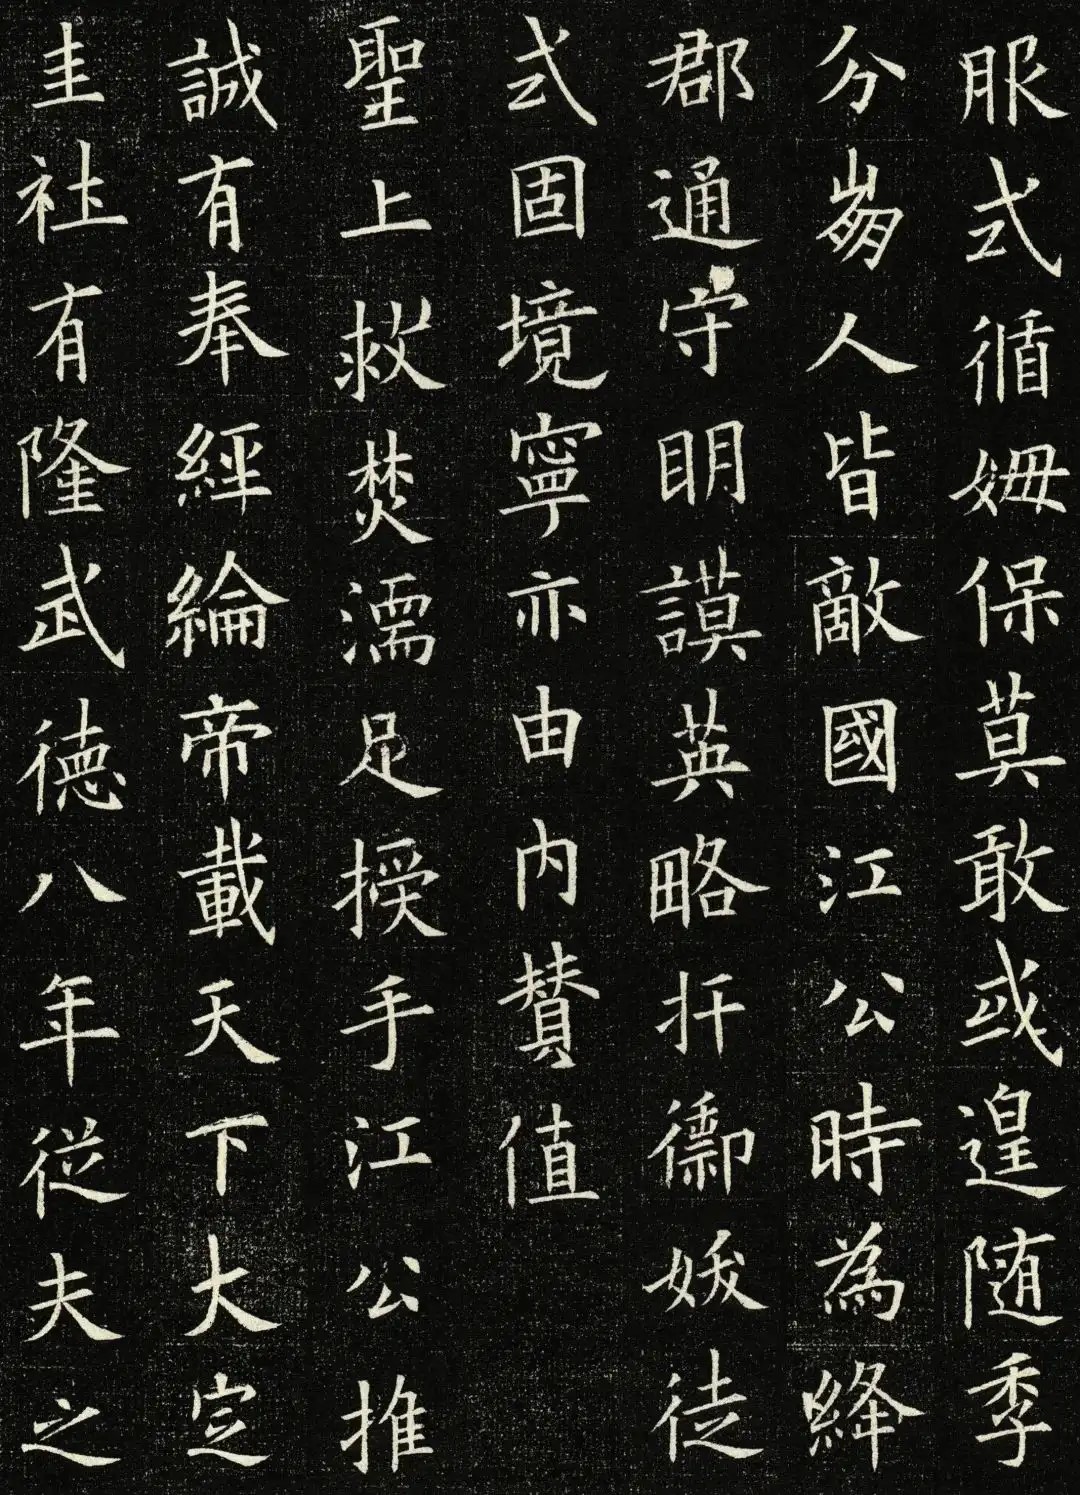 服式循姆保莫敢或遑随季
分崩人皆敵國江公時為絳
郡通守明謨英略扞御妖徒
式固境寧亦由内賛值
聖上救焚濡足授手江公推
誠有奉經綸帝載天下大定
圭社有隆武德八年從夫之